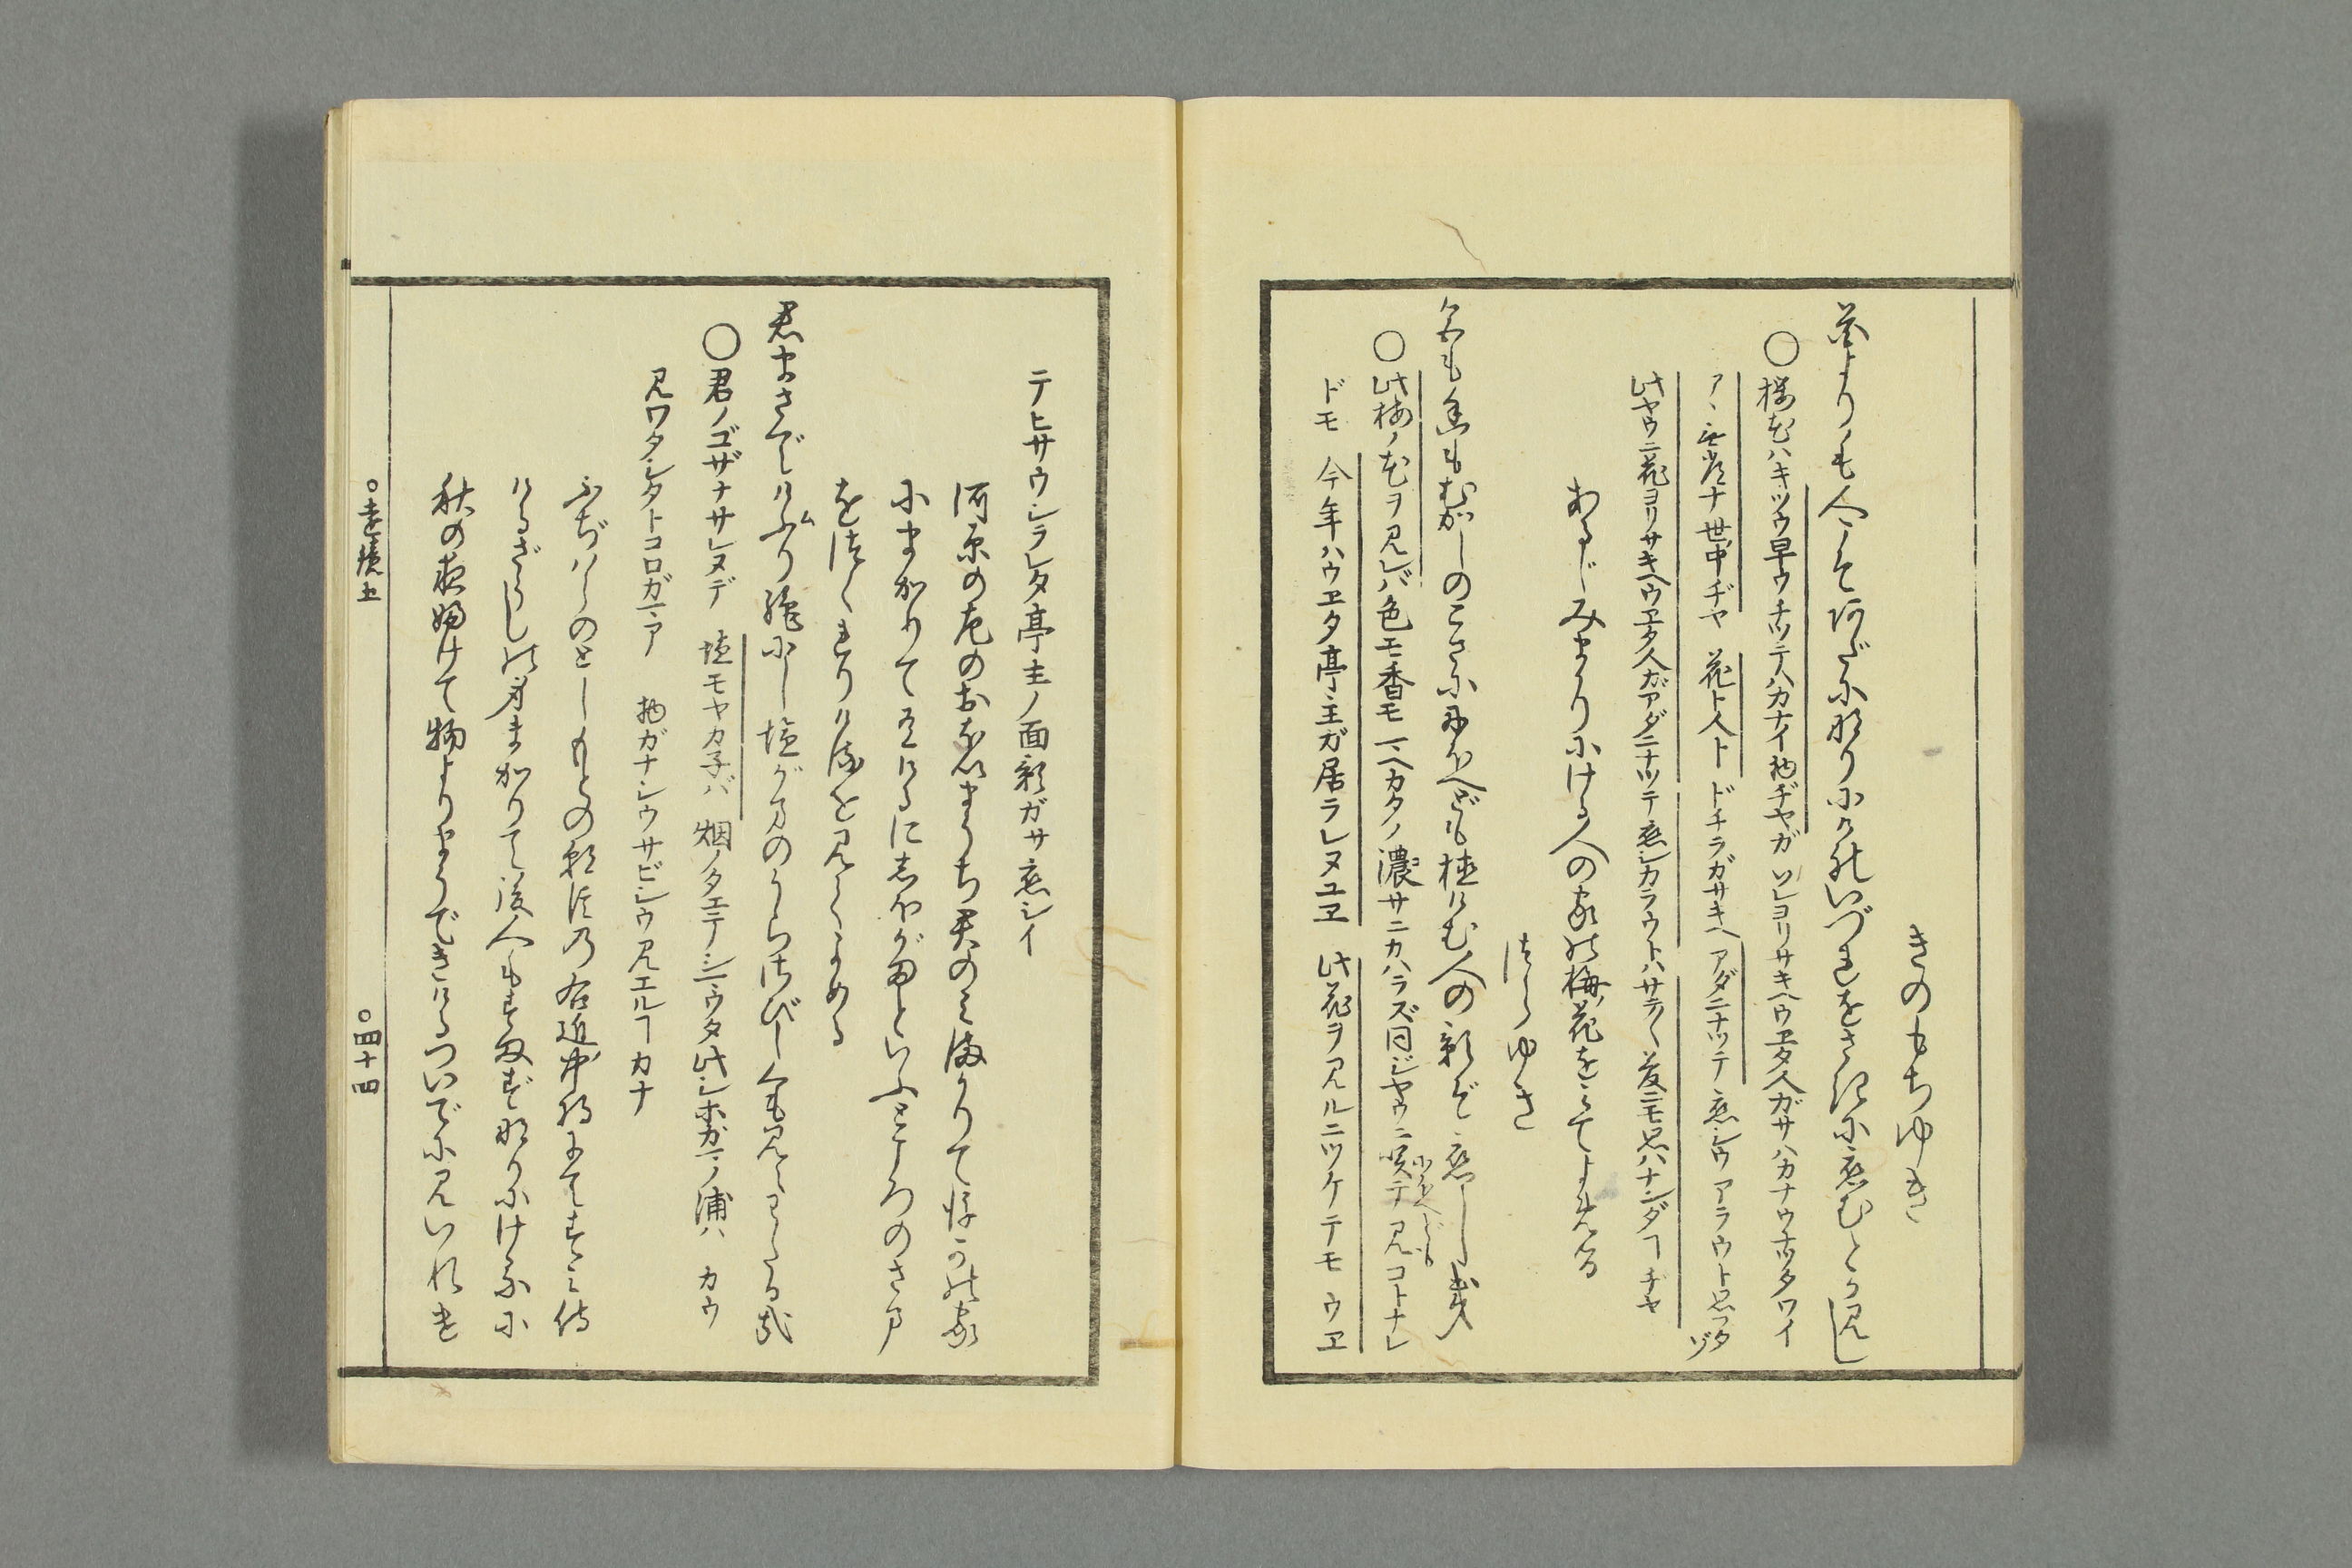 きのもちゆき
花よりも人こそあだになりにけれいづれをさきに恋むとか見し
○桜花ハキツウ早ウチツテハカナイ物ヂヤガソレヨリサキヘウヱタ人ガサハカナウナツタワイ
アヽ無常ナ世中ヂヤ 花ト人トドチラガサキヘアダニナツテ恋シウアラウト思ツタゾ
此ヤウニ花ヨリサキヘウヱタ人ガアダニナツテ恋シカラウトハサテ〱夢ニモ思ハナンダヿヂヤ
あるじみまかりにける人の家の梅花を見てよめる
つらゆき
色も香もむかしのこさににほへども植けむ人の影ぞ恋しき
○此梅ノ花ヲ見レバ色モ香モ一ヘカタノ濃サニカハラズ同ジヤウニ咲テ見コトナレ
にほへども
ドモ 今年ハウヱタ亭主ガ居ラレヌユヱ 此花ヲ見ルニツケテモ ウヱ
テヒサウシラレタ亭主ノ面影ガサ恋シイ
河原の左のおほいまうち君のみまかりて後かの家
にまかりて有けるに しほがまといふところのさま
をつくれりけるを見てよめる
君まさでけふり絶にし塩がまのうらさびしくも見えわたる哉
○君ノゴザナサレヌデ 塩モヤカ子バ 烟ノタエテシマウタ此シホガマノ浦ハ カウ
見ワタシタトコロガマア 物ガナシウサビシウ見エルヿカナ
ふぢはらのとしもとの朝臣の右近中将にてすみ侍
けるざうしの身まかりて後人もすまずなりにけるに
秋の夜ふけて物よりまうできけるついでに見いれけ
○遠鏡五
○四十四